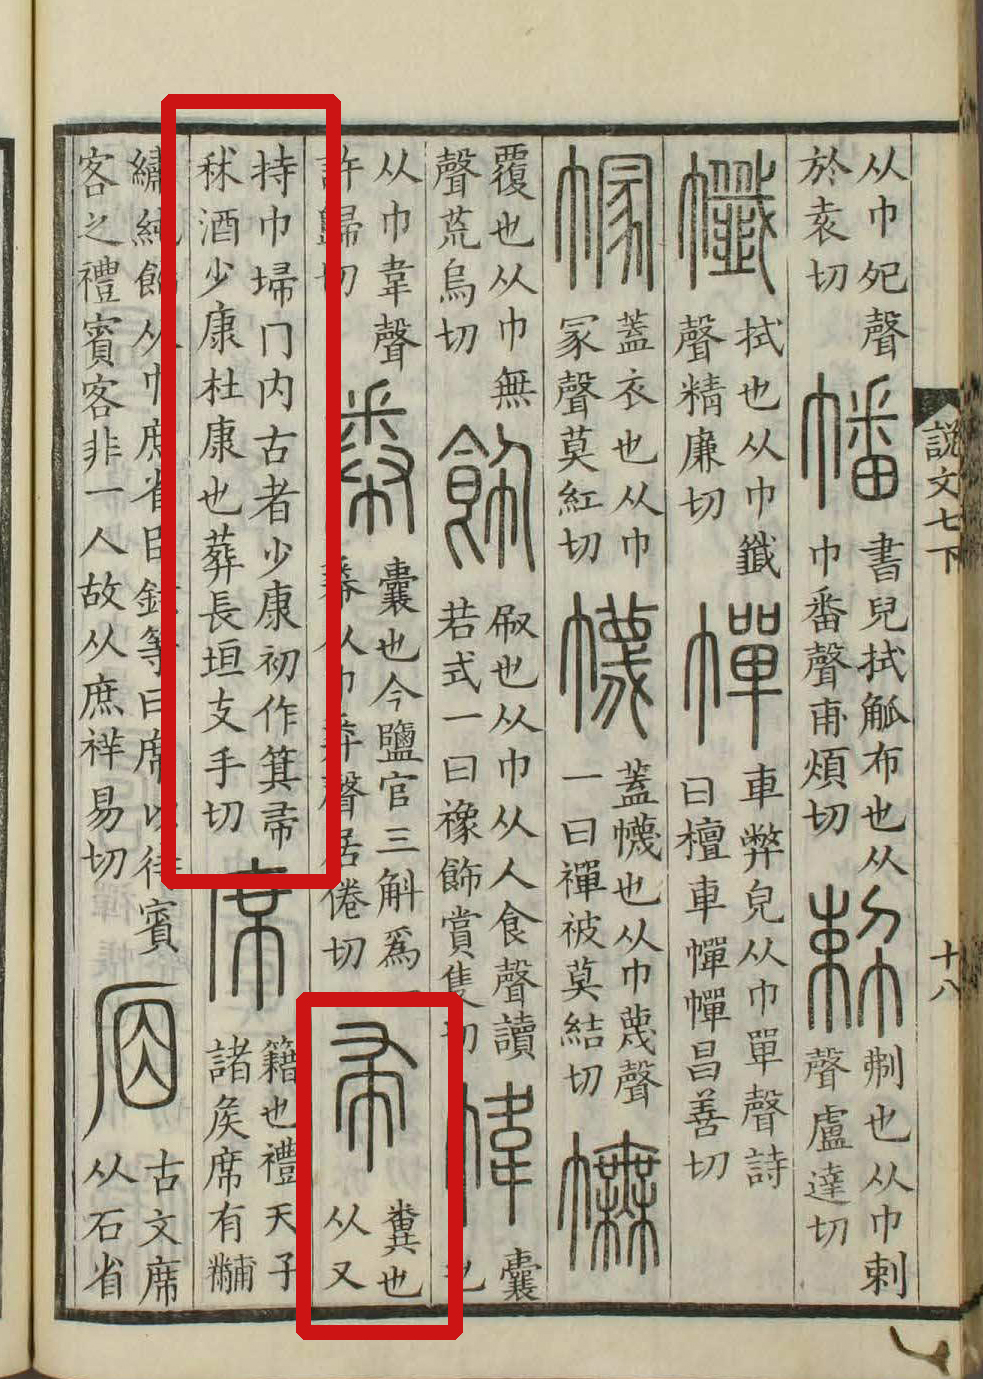 説文七下
十八
从巾夗聲
於袁切
幡
書兒拭觚布也从
巾番聲甫煩切
刜也从巾剌
聲盧達切
㡨
拭也从巾韱
聲精廉切
幝
車弊皃从巾單聲詩
曰檀車幝幝昌善切
㠓
蓋衣也从巾
冡聲莫紅切
幭
蓋幭也从巾蔑聲
一曰襌被莫結切
幠
覆也从巾無
聲荒烏切
飾
㕞也从巾从人食聲讀
若式一曰襐飾賞隻切
幃
囊
也
从巾韋聲
許歸切
帣
囊也今鹽官三斛爲一
帣从巾𢍏聲居倦切
帚
糞也
从又
持巾埽冂内古者少康初作箕帚
秫酒少康杜康也葬長垣支手切
席
籍也禮天子
諸矦席有黼
繡純飾从巾庶省臣鉉等曰席以待賓
客之禮賓客非一人故从庶祥易切
古文席
从石省